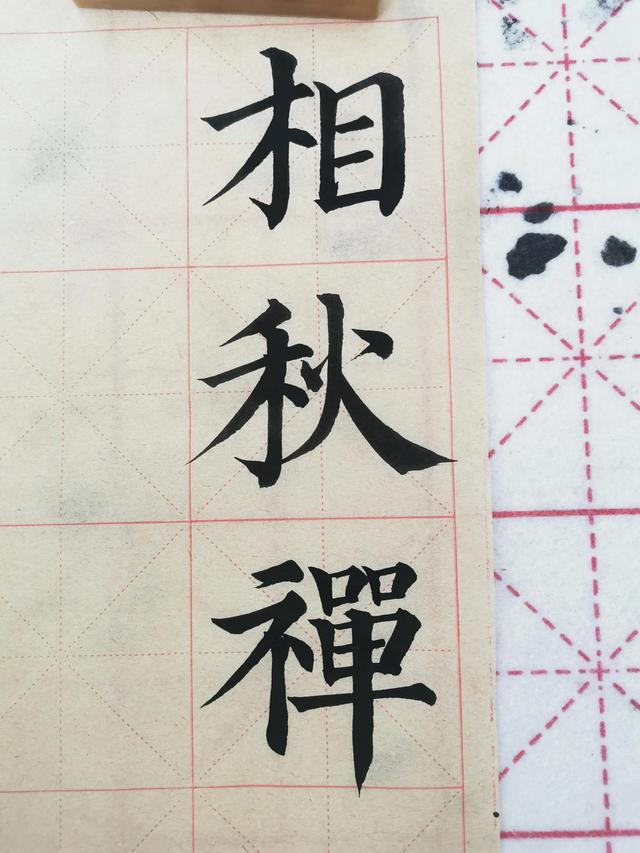 相秋禪